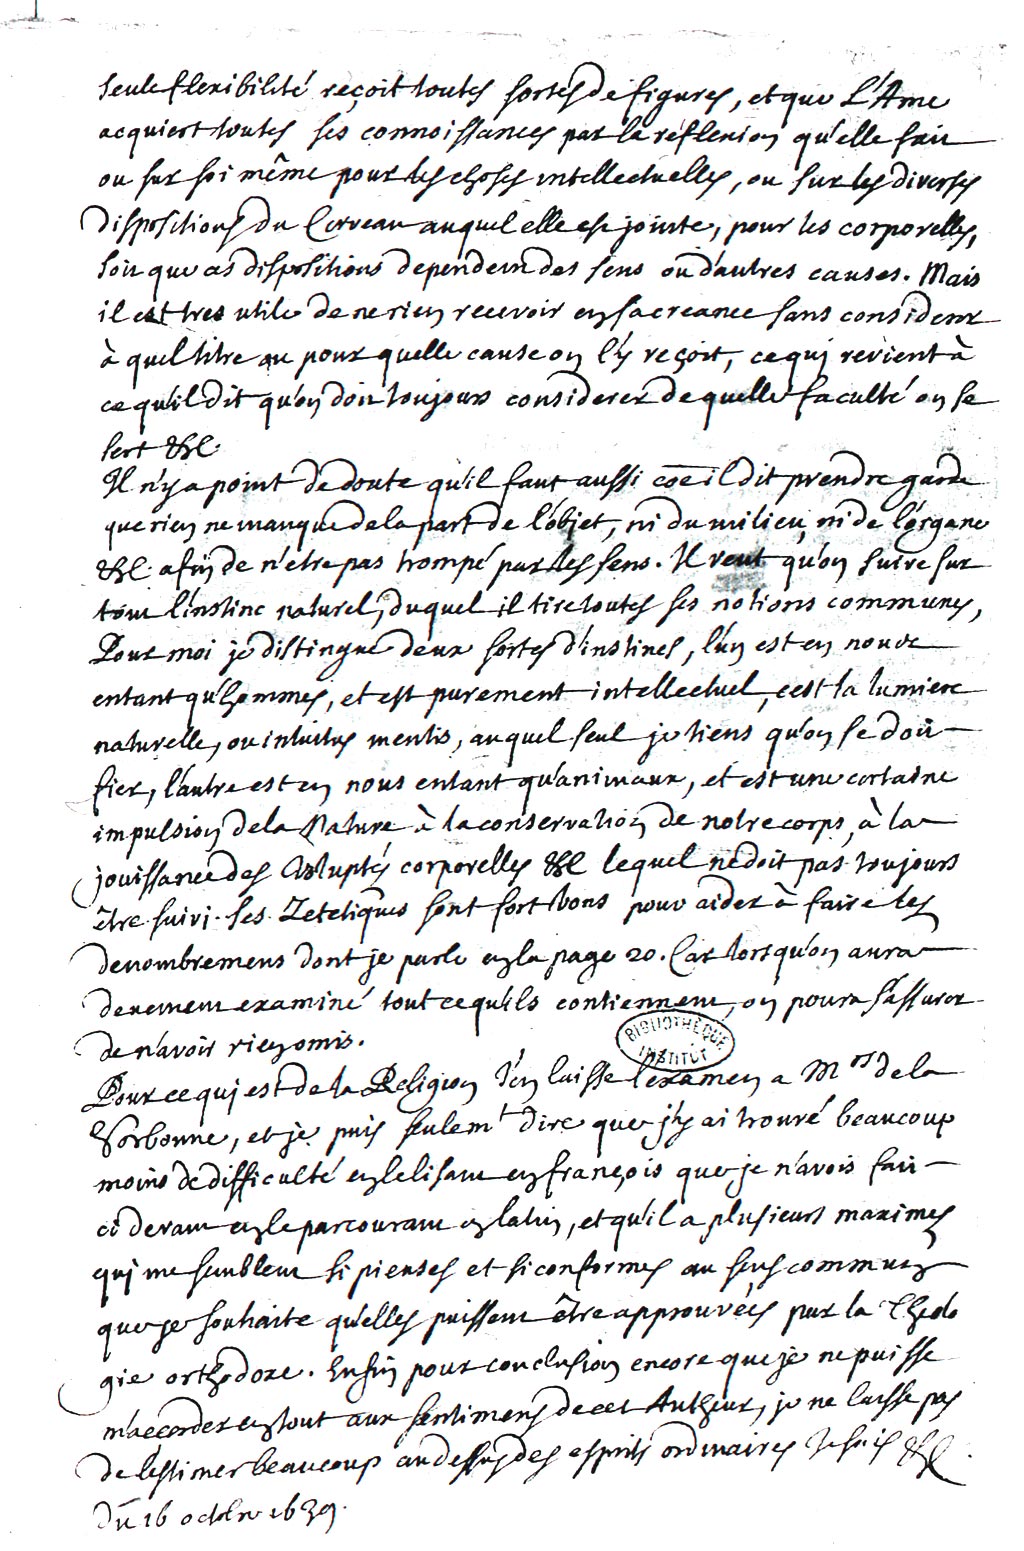 seule flexibilité reçoit toutes sortes de figures, et que l'Ame
acquiert toutes ses connoissances par la reflexion qu'elle fait
ou sur soi même pour les choses intellectuelles, ou sur les diverses
dispositions du Cerveau auquel elle est jointe, pour les corporelles,
soit que ces dispositions dependent des sens ou d'autres causes. Mais
il est tres utile de ne rien recevoir en sa creance sans considerer
à quel titre ou pour quelle cause on l'y reçoit, ce qui revient à
ce qu'il dit qu'on doit toujours considerer de quelle faculté on se
sert &c.
Il n'y a point de doute qu'il faut aussi coe il dit prendre garde
que rien ne manque de la part de l'objet, ni du milieu, ni de l'organe
&c. afin de n'etre pas trompé par les sens. Il veut qu'on suive sur
tout l'instinc naturel, duquel il tire toutes ses notions communes,
Pour moi je distingue deux sortes d'instincs, l'un est en nous
entant qu'hommes, et est purement intellectuel, c'est la lumiere
naturelle, ou intuitus mentis, auquel seul je tiens qu'on se doit
fier, l'autre est en nous entant qu'animaux, et est une certaine
impulsion de la Nature à la conservation de notre corps, à la
jouissance des voluptés corporelles &c lequel ne doit pas toujours
être suivi. Ses Zetetiques sont fort bons pour aider à faire les
denombremens dont je parle en la page 20. Car lorsqu'on aura
deuement examiné tout ce qu'ils contiennent, on poura s'assurer
de n'avoir rien omis.
BIBLIOTHÈQUE
INSTITUT
Pour ce qui est de la Religion j'en laisse l'examen a Mrs de la
Sorbonne, et je puis seulemt dire que j'y ai trouvé beaucoup
moins de difficulté en le lisant en françois que je n'avois fait
ci devant en le parcourant en latin, et qu'il a plusieurs maximes
qui me semblent si pieuses et si conformes au sens commun
que je souhaite qu'elles puissent être approuvées par la Theolo
gie orthodoxe. Enfin pour conclusion encore que je ne puisse
m'accorder en tout aux sentimens de cet Autheur, je ne laisse pas
de l'estimer beaucoup au dessus des esprits ordinaires Je suis &c.
du 16 octobre 1639.